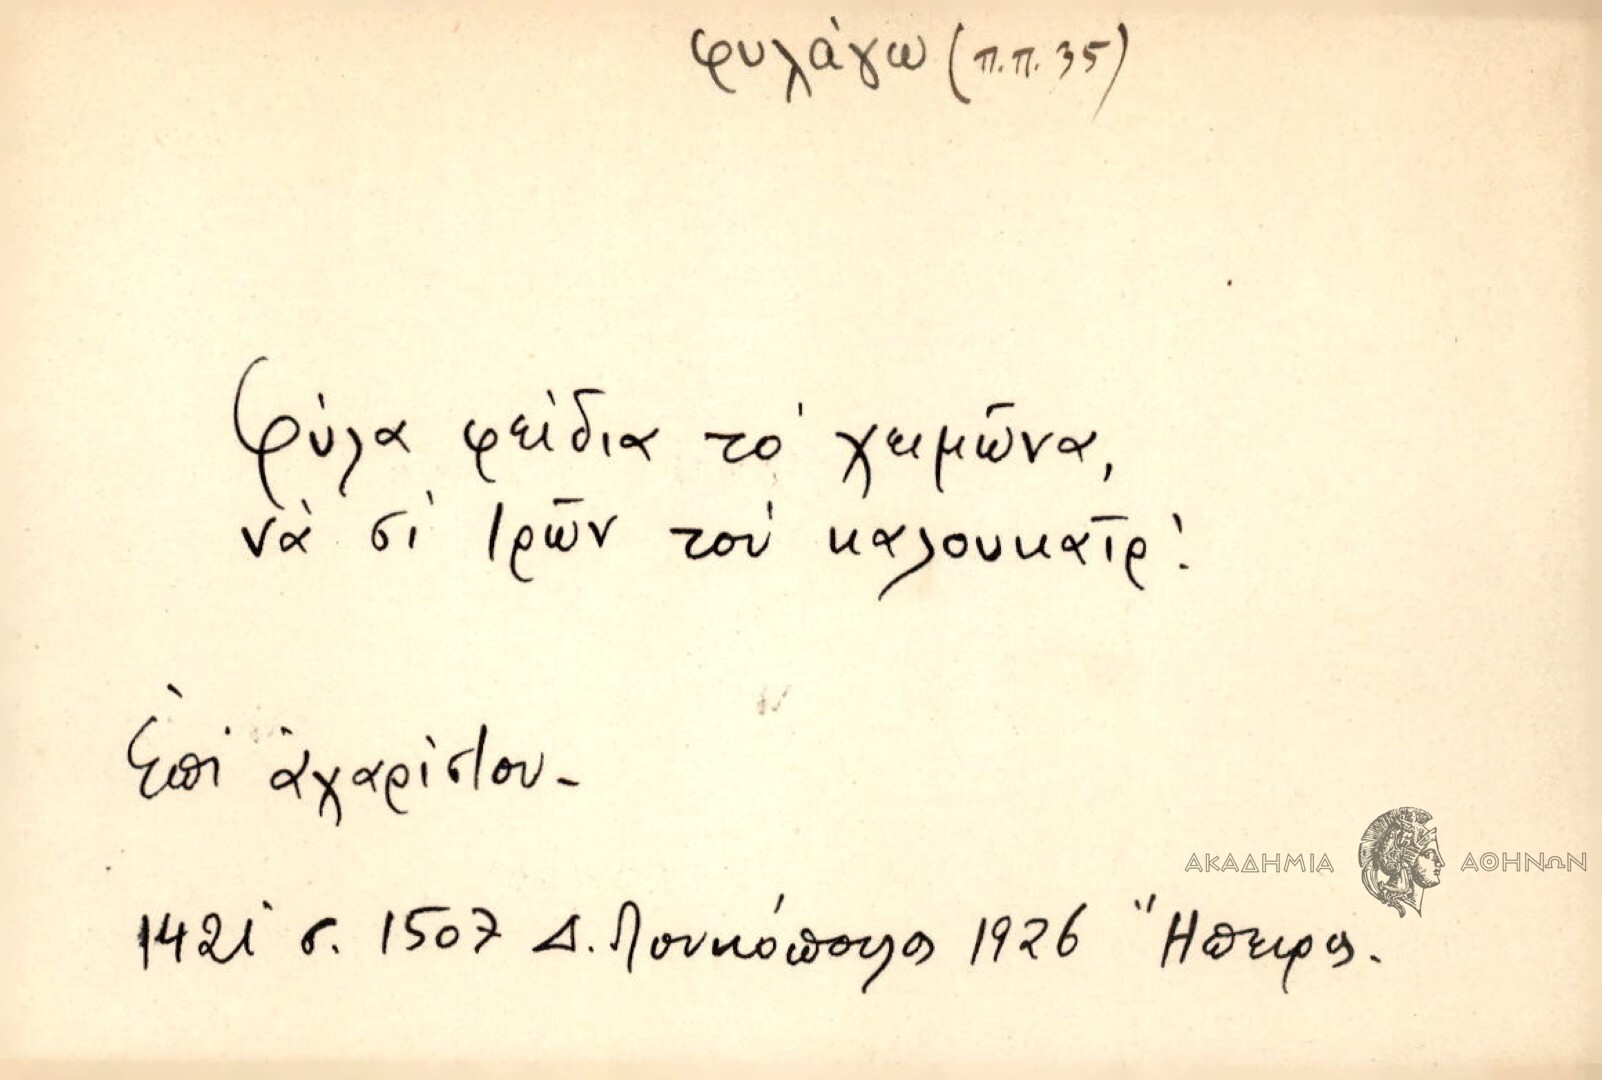 φυλάγω (π.π. 35)
Φύλα φείδια τὸ χειμῶνα,
νὰ σὶ τρῶν τοὺ καλουκαῖρ'.
Ἐπὶ ἀχαρίστου -
1421 σ. 1507 Δ. Λουκόπουλος 1926 Ἤπειρος.
ΑΚΑΔΗΜΙΑ ΑΘΗΝΩΝ